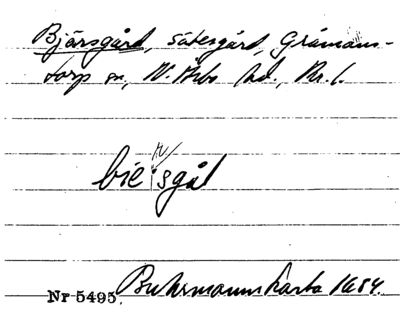 Bjärsgård, säterigård, Gråmans-
torp sn, N. Åsbo hd., Kr. l.
bie rsgål
Nr 5495. Buhrmanns karta 1684.